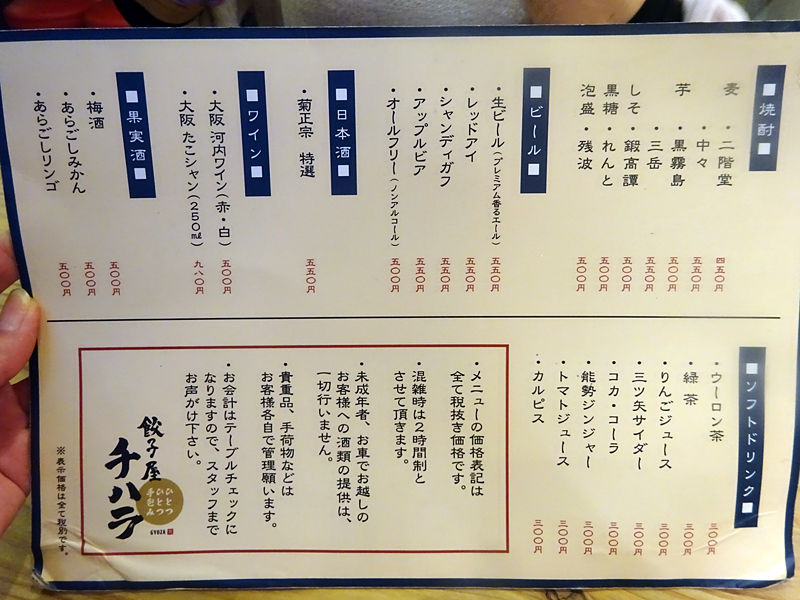 ■焼酎■
麦・二階堂 四五〇円
・中々 五五〇円
芋・黒霧島 五五〇円
・三岳 五五〇円
しそ・鍛高譚 五五〇円
黒糖・れんと 五〇〇円
泡盛・残波 五〇〇円
■ビール■
・生ビール(プレミアム香るエール) 五五〇円
・レッドアイ 五五〇円
・シャンディガフ 五五〇円
・アップルビア 五五〇円
・オールフリー(ノンアルコール) 五〇〇円
■日本酒■
・菊正宗 特選 五五〇円
■ワイン■
・大阪 河内ワイン(赤・白) 五〇〇円
・大阪 たこシャン(250㎖) 九八〇円
■果実酒■
・梅酒 五〇〇円
・あらごしみかん 五〇〇円
・あらごしリンゴ 五〇〇円
■ソフトドリンク■
・ウーロン茶 三〇〇円
・緑茶 三〇〇円
・りんごジュース 三〇〇円
・三ツ矢サイダー 三〇〇円
・コカ・コーラ 三〇〇円
・能勢ジンジャー 三〇〇円
・トマトジュース 三〇〇円
・カルピス 三〇〇円
・メニューの価格表記は
全て税抜き価格です。
・混雑時は2時間制と
させて頂きます。
・未成年者、お車でお越しの
お客様への酒類の提供は、
一切行いません。
・貴重品、手荷物などは
お客様各自で管理願います。
・お会計はテーブルチェックに
なりますので、スタッフまで
お声がけ下さい。
餃子屋
チハラ
ひとつ
ひとつ
手包み
GYOZA
※表示価格は全て税別です。